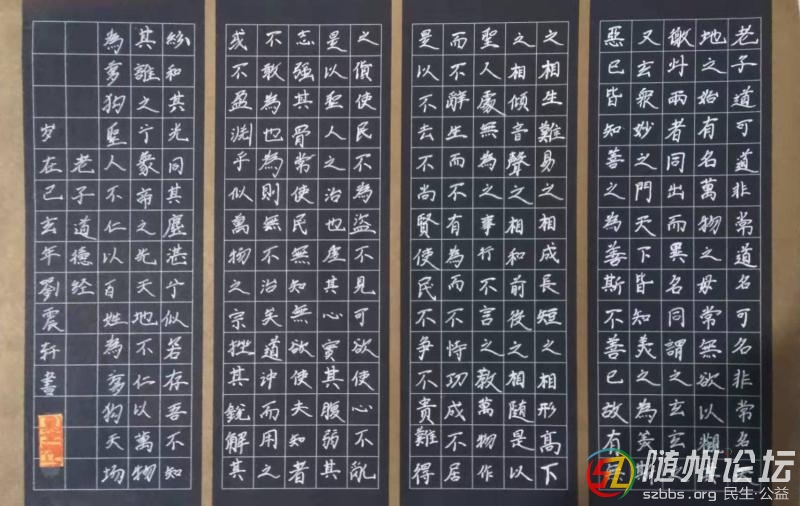 老子道可道非常道名可名非常名
地之始有名萬物之母常無欲以觀其
徼此兩者同出而異名同謂之玄玄之
又玄眾妙之門天下皆知美之為美斯
惡已皆知善之為善斯不善已故有無
之相生難易之相成長短之相形高下
之相傾音聲之相和前後之相隨是以
聖人處無為之事行不言之教萬物作
而不辭生而不有為而不恃功成不居
是以不去不尚賢使民不争不貴難得
之貨使民不為盜不見可欲使心不亂
是以聖人之治也虛其心實其腹弱其
志強其骨常使民無知無欲使夫知者
不敢為也為則無不治矣道沖而用之
或不盈淵乎似萬物之宗挫其銳解其
紛和其光同其塵湛兮似若存吾不知
其誰之兮象帝之先天地不仁以萬物
為芻狗聖人不仁以百姓為芻狗天场
老子道德经
岁在己亥年劉震轩書
随州论坛
szbbs.org 民生·公益